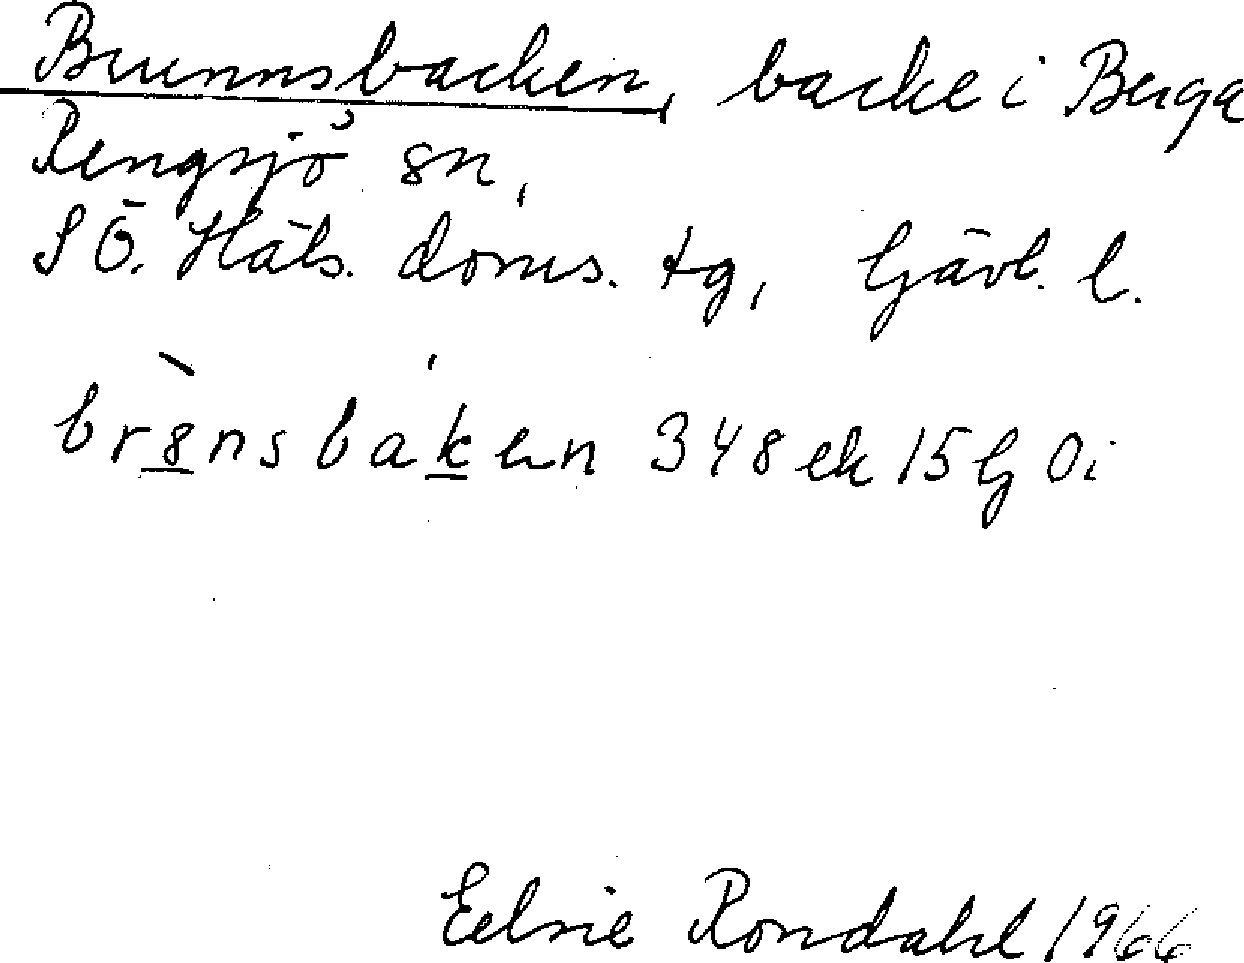 Brunnsbacken, backe i Berga
Rengsjö sn,
SÖ. Häls. doms. tg, Gävl. l.
brònsbaken 348 ek 15 G Oi
Elsie Rondahl 1966